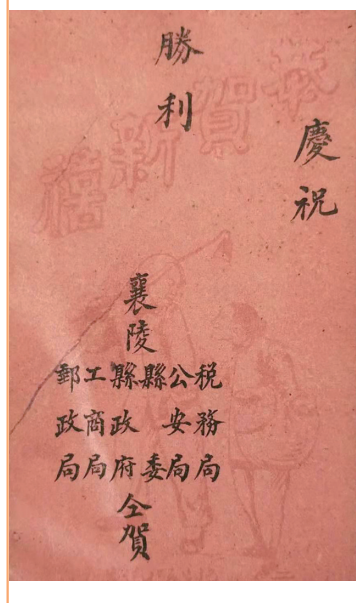 恭賀新禧
慶祝
勝利
襄陵
税務局
公安局
縣委
縣政府
工商局
郵政局
仝賀